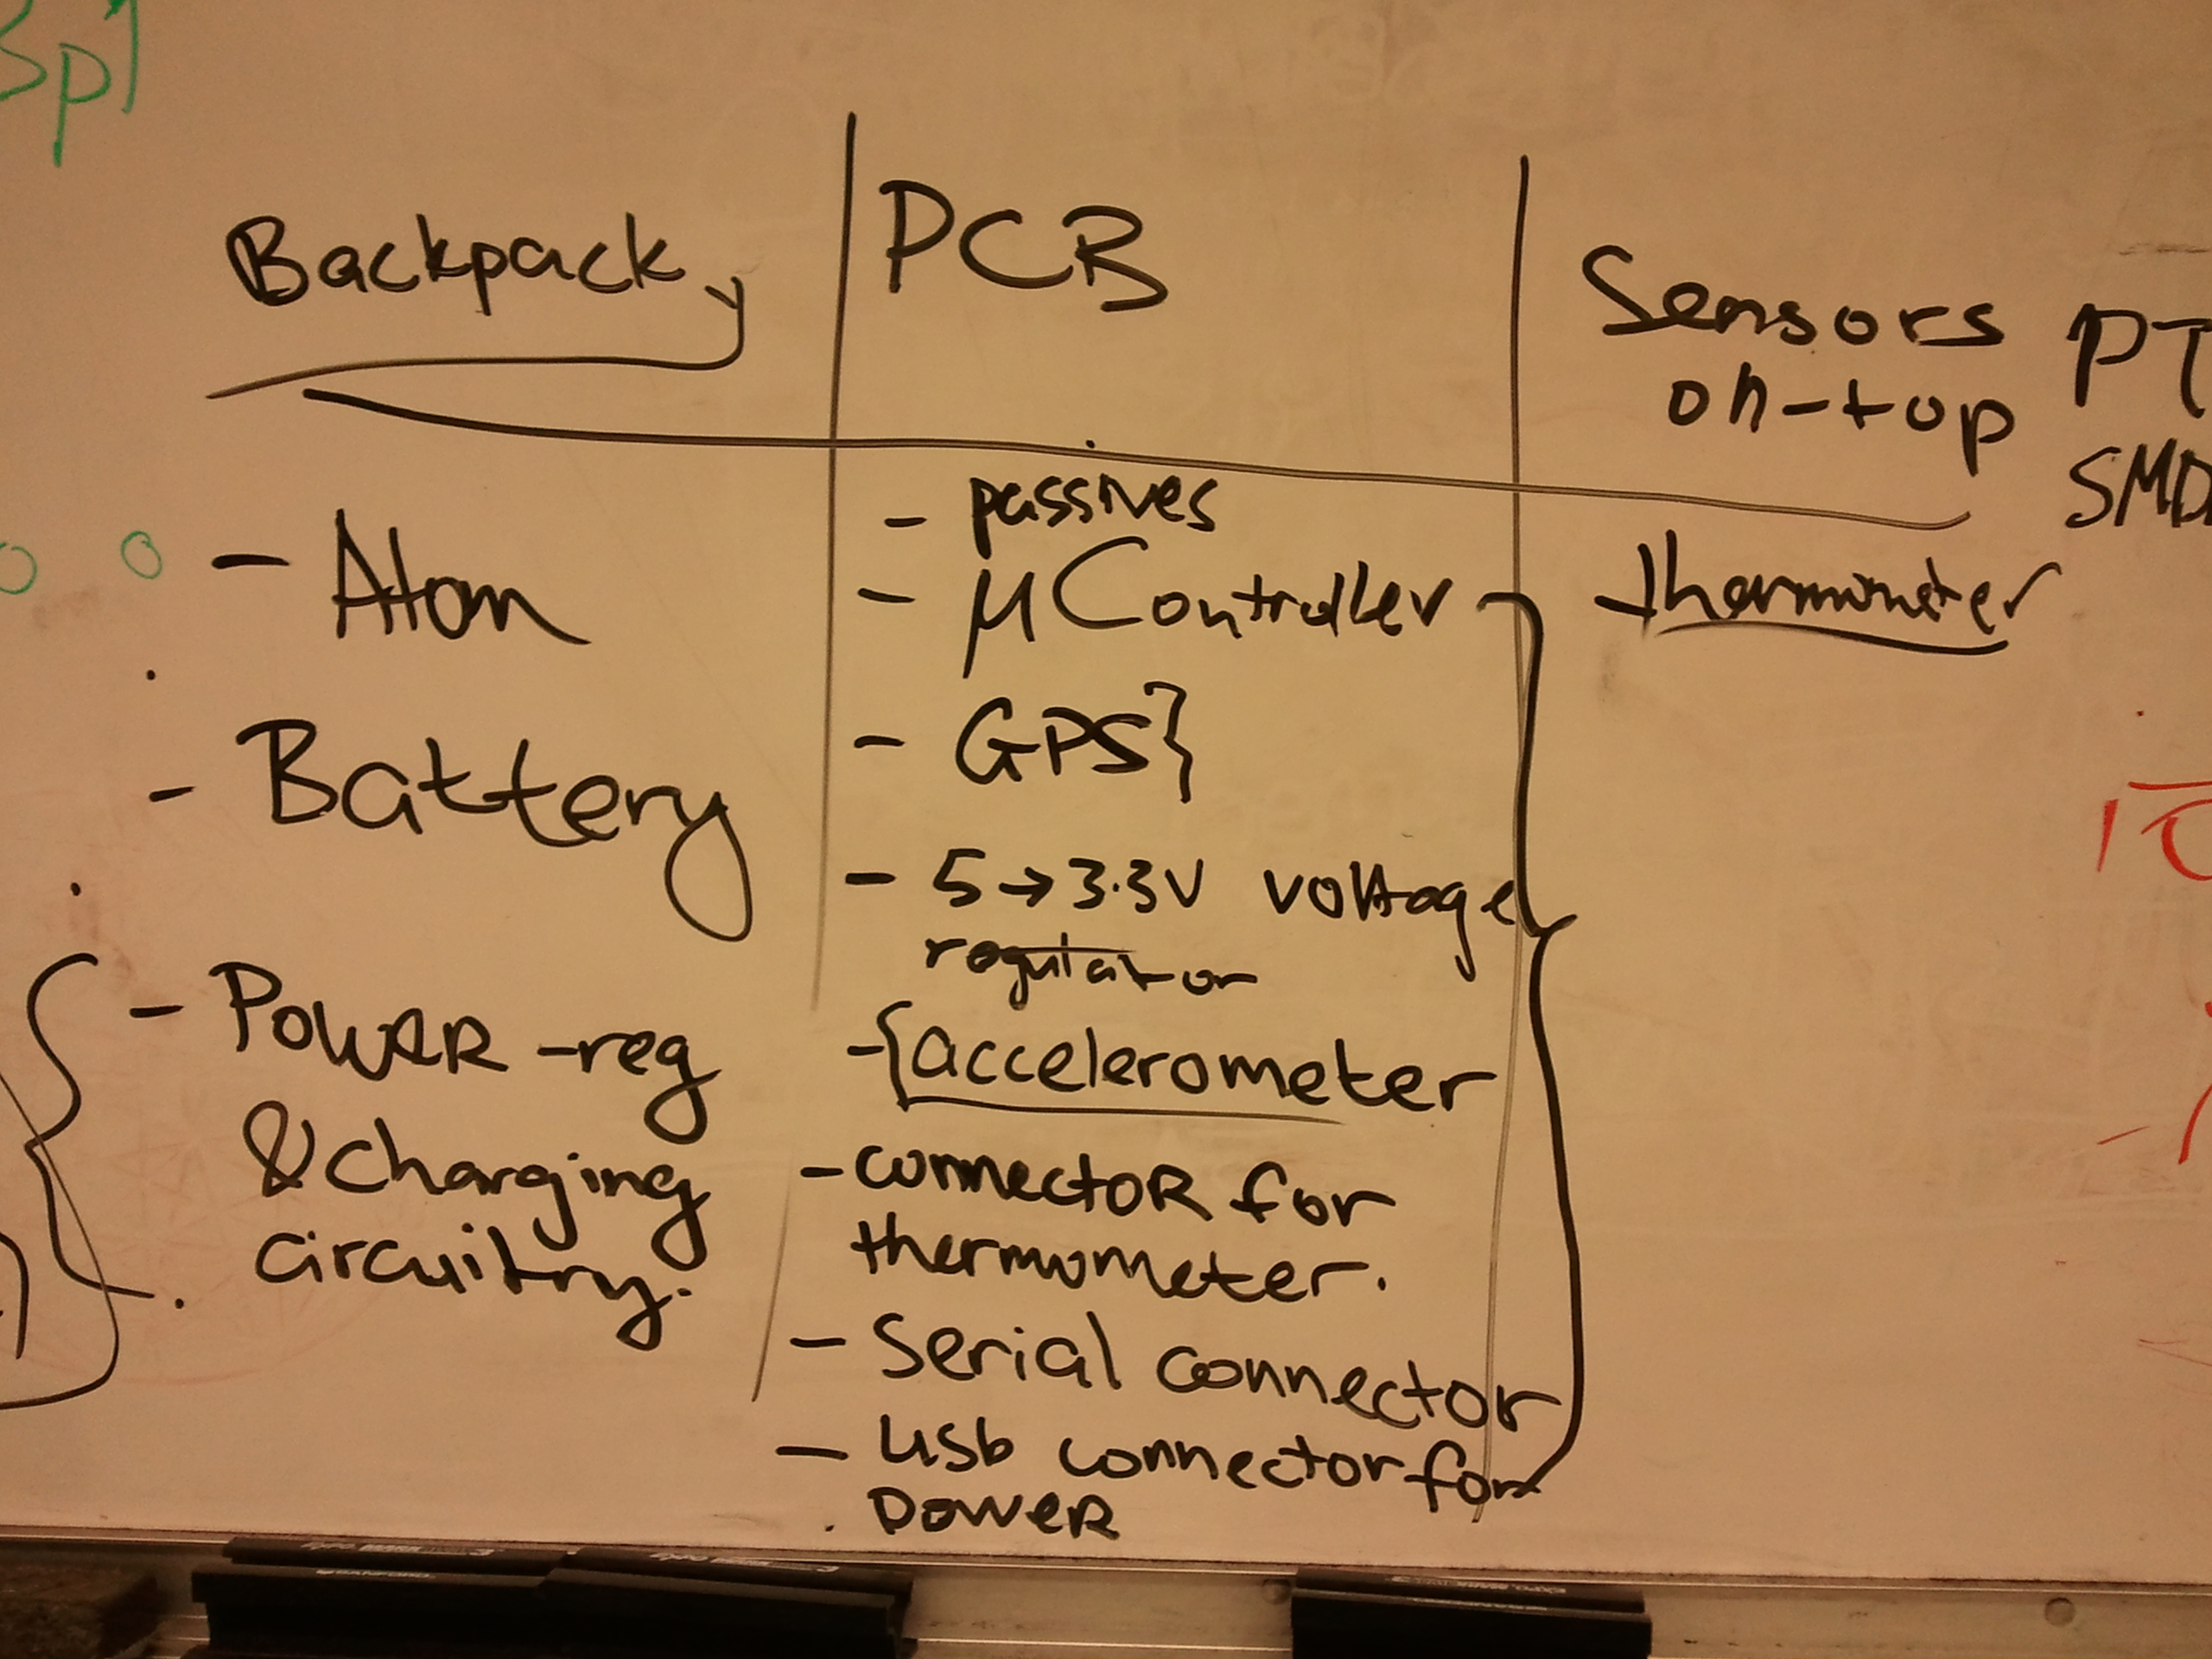 Backpack
- Atom
- Battery
- Power -reg
& charging
circuitry.
PCB
- passives
- μController
- GPS}
- 5→3.3V voltage
regulator
-{accelerometer
- connector for
thermometer.
- Serial connector
- usb connector for
power
Sensors
on-top
- thermometer
PT
SMD